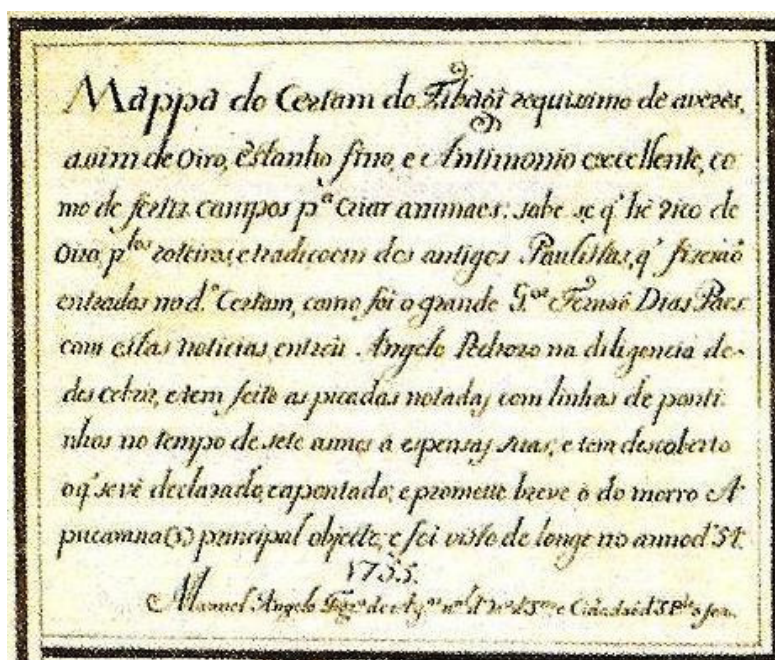 Mappa do Certam do Tibagi requissimo de averes,
assim de Oiro, Estanho fino, e Antimonio excellente, co
mo de ferteiz campos pª criar animaes: sabe se q' hê rico de
Oiro, p.los roteiros, e tradiçoens dos antigos Paulistas, q' fizeraõ
entradas no d.º Certam, como foi o grande G.or Fernaõ Dias Paes
com estas noticias, entrou Angelo Pedrozo na diligencia de
descobrir, e tem feito as picadas notadas com linhas de ponti
nhos no tempo de sete annos a espensas suas, e tem descoberto
o q' se vê declarado, e apontado; e promette breve o do morro A
pucarana(3) principal objecto, e foi visto de longe no anno d' 54.
1755.
Manoel Angelo